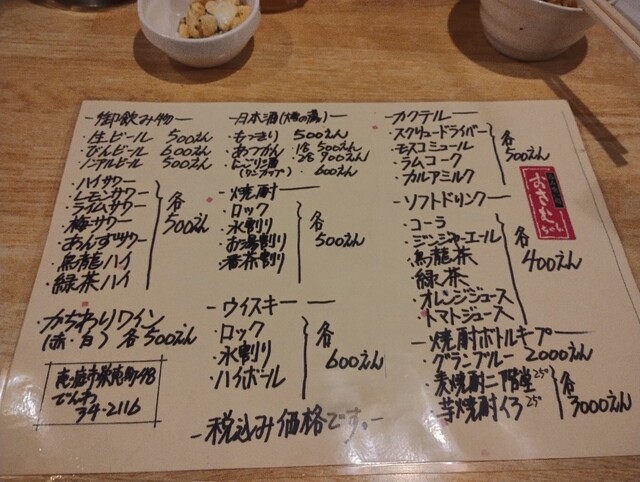 -御飲み物-
・生ビール 500えん
・かんビール 600えん
・ノンアルビール 500えん
・ハイサワー
・レモンサワー
・ライムサワー
・梅サワー
・あんずサワー
・烏龍ハイ
・緑茶ハイ
各500えん
・かちわりワイン
(赤・白) 各500えん
栄恵町98
でんわ
34-2116
-日本酒
・もっきり 500えん
・あつかん 1合 500えん
2合 900えん
・にごり酒
(ワンカップ) ・600えん
-焼酎-
・ロック
・水割り
・お湯割り
・番茶割り
各500えん
-ウイスキー-
・ロック
・水割り
・ハイボール
各600えん
-税込み価格です。-
カクテル-
・スクリュードライバー
・モスコミュール
・ラムコーク
・カルアミルク
各500えん
おさむちゃん
-ソフトドリンク-
・コーラ
・ジンジャーエール
・烏龍茶
・緑茶
・オレンジジュース
・トマトジュース
各400えん
-焼酎ボトルキープ-
・グランブルー 2000えん
・麦焼酎二階堂25°
・芋焼酎くろ25°
各3000えん